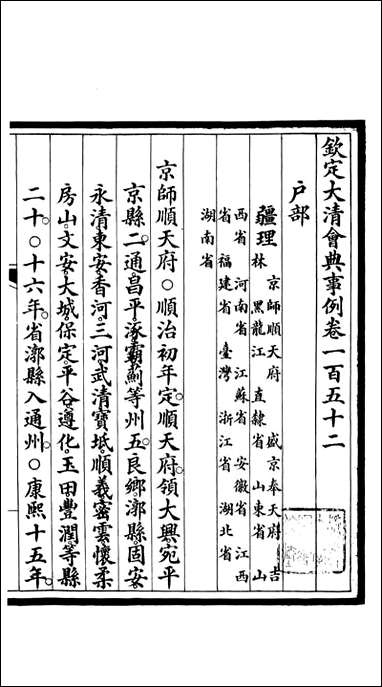 欽定大清會典事例卷一百五十二
户部
疆理
京師順天府 盛京奉天府 吉
林 黑龍江 直隸省 山東省 山
西省 河南省 江蘇省 安徽省 江西
省 福建省 臺灣 浙江省 湖北省
湖南省
京師順天府○順治初年定順天府領大興宛平
京縣二通昌平涿霸薊等州五良鄉漷縣固安
永清東安香河三河武清寶坻順義密雲懷柔
房山文安大城保定平谷遵化玉田豐潤等縣
二十○十六年省漷縣入通州○康熙十五年